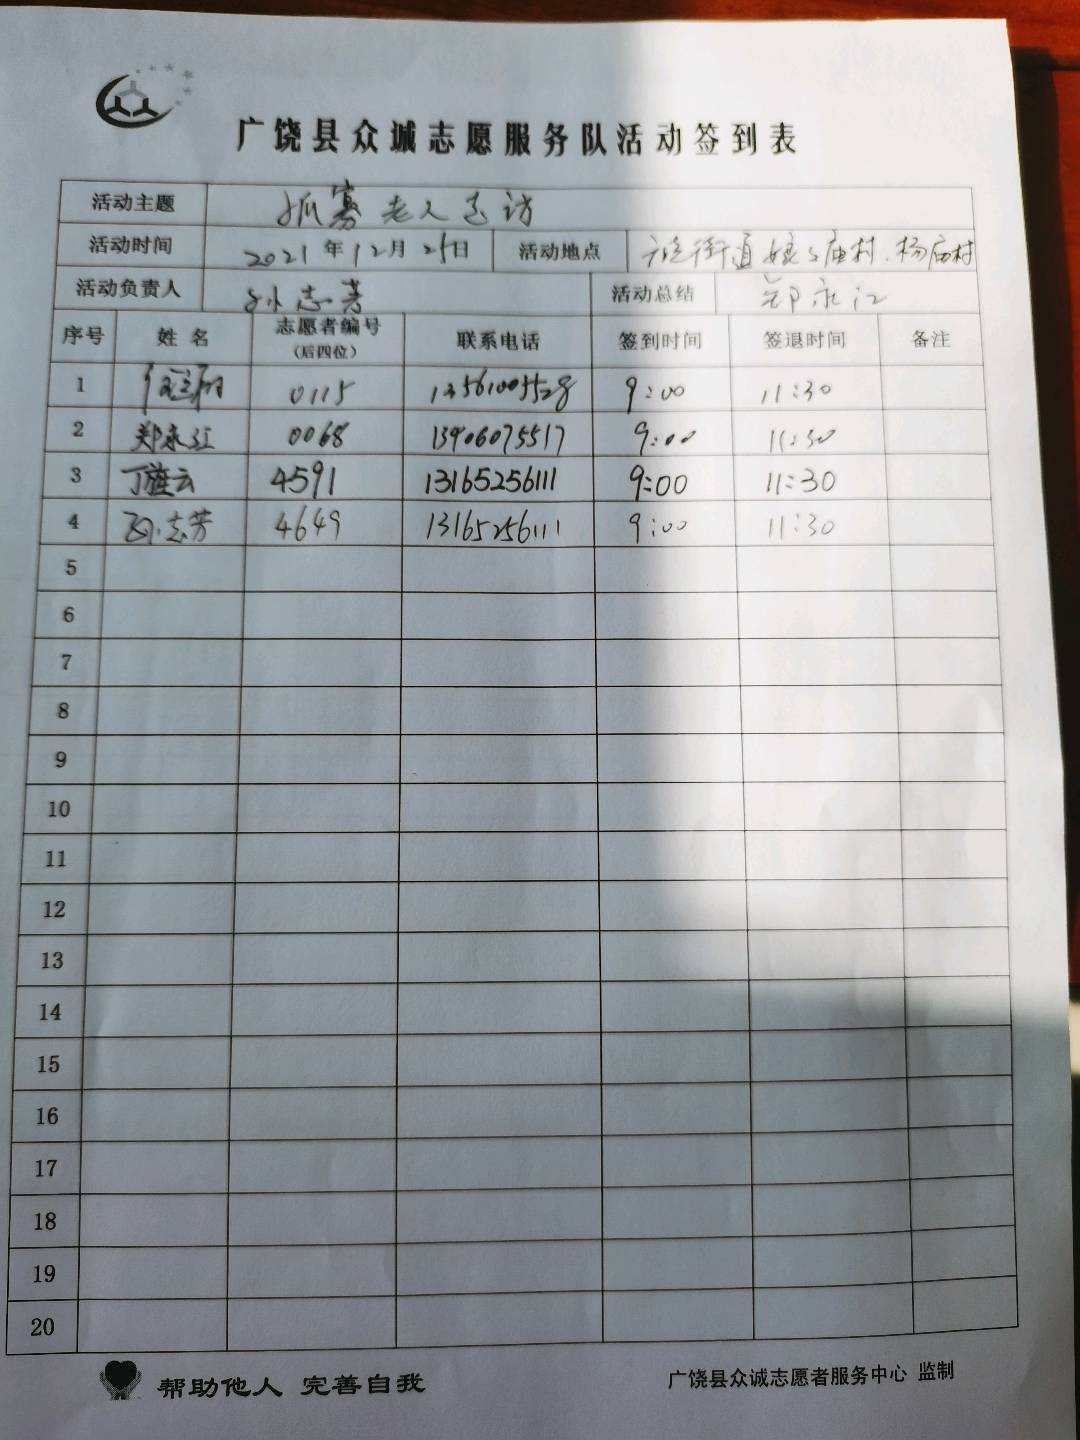 广饶县众诚志愿服务队活动签到表
活动主题 孤寡老人走访
活动时间 2021年12月25日 活动地点 广饶街道娘娘庙村、杨庙村
活动负责人 孙志芳 活动总结 郑永江
序号 姓名 志愿者编号（后四位） 联系电话 签到时间 签退时间 备注
1 0115 13561005528 9:00 11:30
2 郑永江 0068 13906075517 9:00 11:30
3 丁莲云 4591 13165256111 9:00 11:30
4 孙志芳 4649 13165256111 9:00 11:30
5
6
7
8
9
10
11
12
13
14
15
16
17
18
19
20
帮助他人 完善自我 广饶县众诚志愿者服务中心 监制